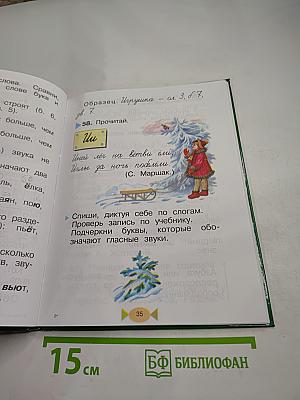 слова. Сравни,
слове букв и
5).
строят (6, 6,
больше, чем
больше, чем
звука не
значают два
ёлка,
пою,
пьёт,
несколько
вьют,
Образец: Игрушка — сл. 3, б. 7,
зв. 7.
58. Прочитай.
Ии
Иней лёг на ветви ели,
Иглы за ночь побелели.
(С. Маршак.)
Спиши, диктуя себе по слогам.
Проверь запись по учебнику.
Подчеркни буквы, которые обо-
значают гласные звуки.
35
15 см
БФ БИБЛИОФАН